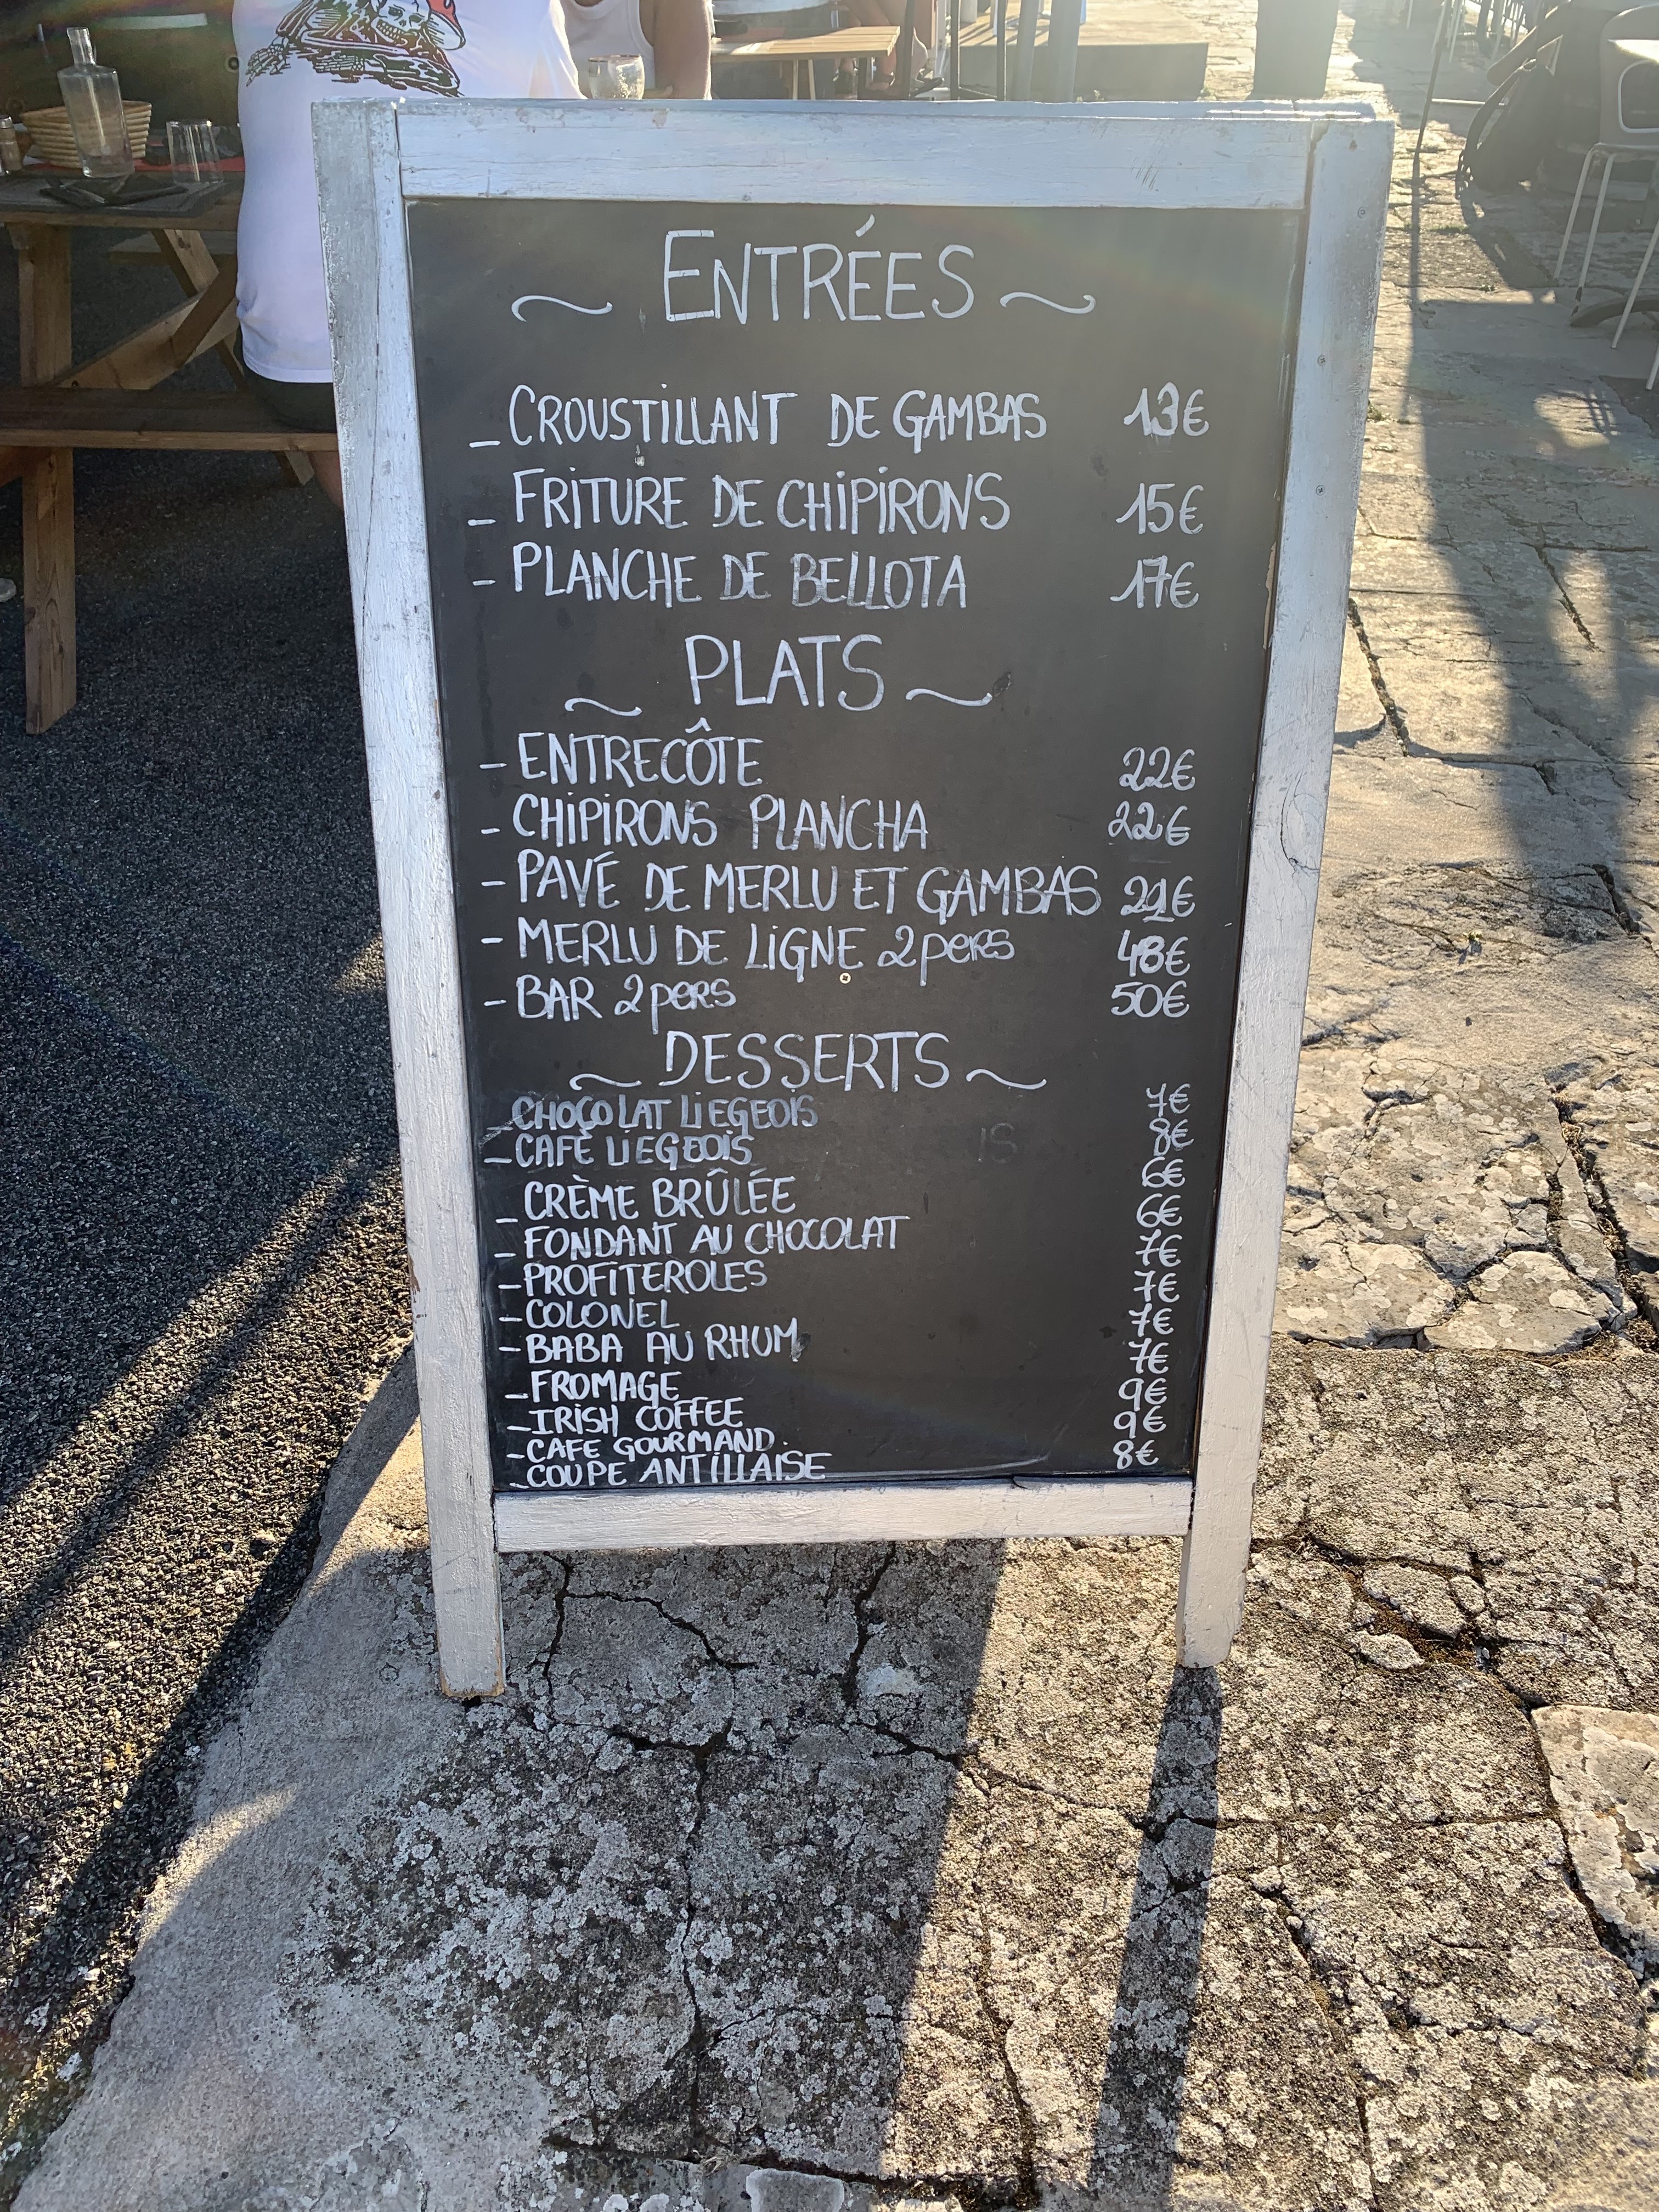 ~ ENTRÉES ~
- CROUSTILLANT DE GAMBAS 13€
- FRITURE DE CHIPIRONS 15€
- PLANCHE DE BELLOTA 17€
~ PLATS ~
- ENTRECÔTE 22€
- CHIPIRONS PLANCHA 22€
- PAVÉ DE MERLU ET GAMBAS 21€
- MERLU DE LIGNE 2 pers 48€
- BAR 2 pers 50€
~ DESSERTS ~
- CHOCOLAT LIEGEOIS 7€
- CAFÉ LIEGEOIS 8€
- CRÈME BRÛLÉE 6€
- FONDANT AU CHOCOLAT 6€
- PROFITEROLES 7€
- COLONEL 7€
- BABA AU RHUM 7€
- FROMAGE 7€
- IRISH COFFEE 9€
- CAFE GOURMAND 9€
- COUPE ANTILLAISE 8€